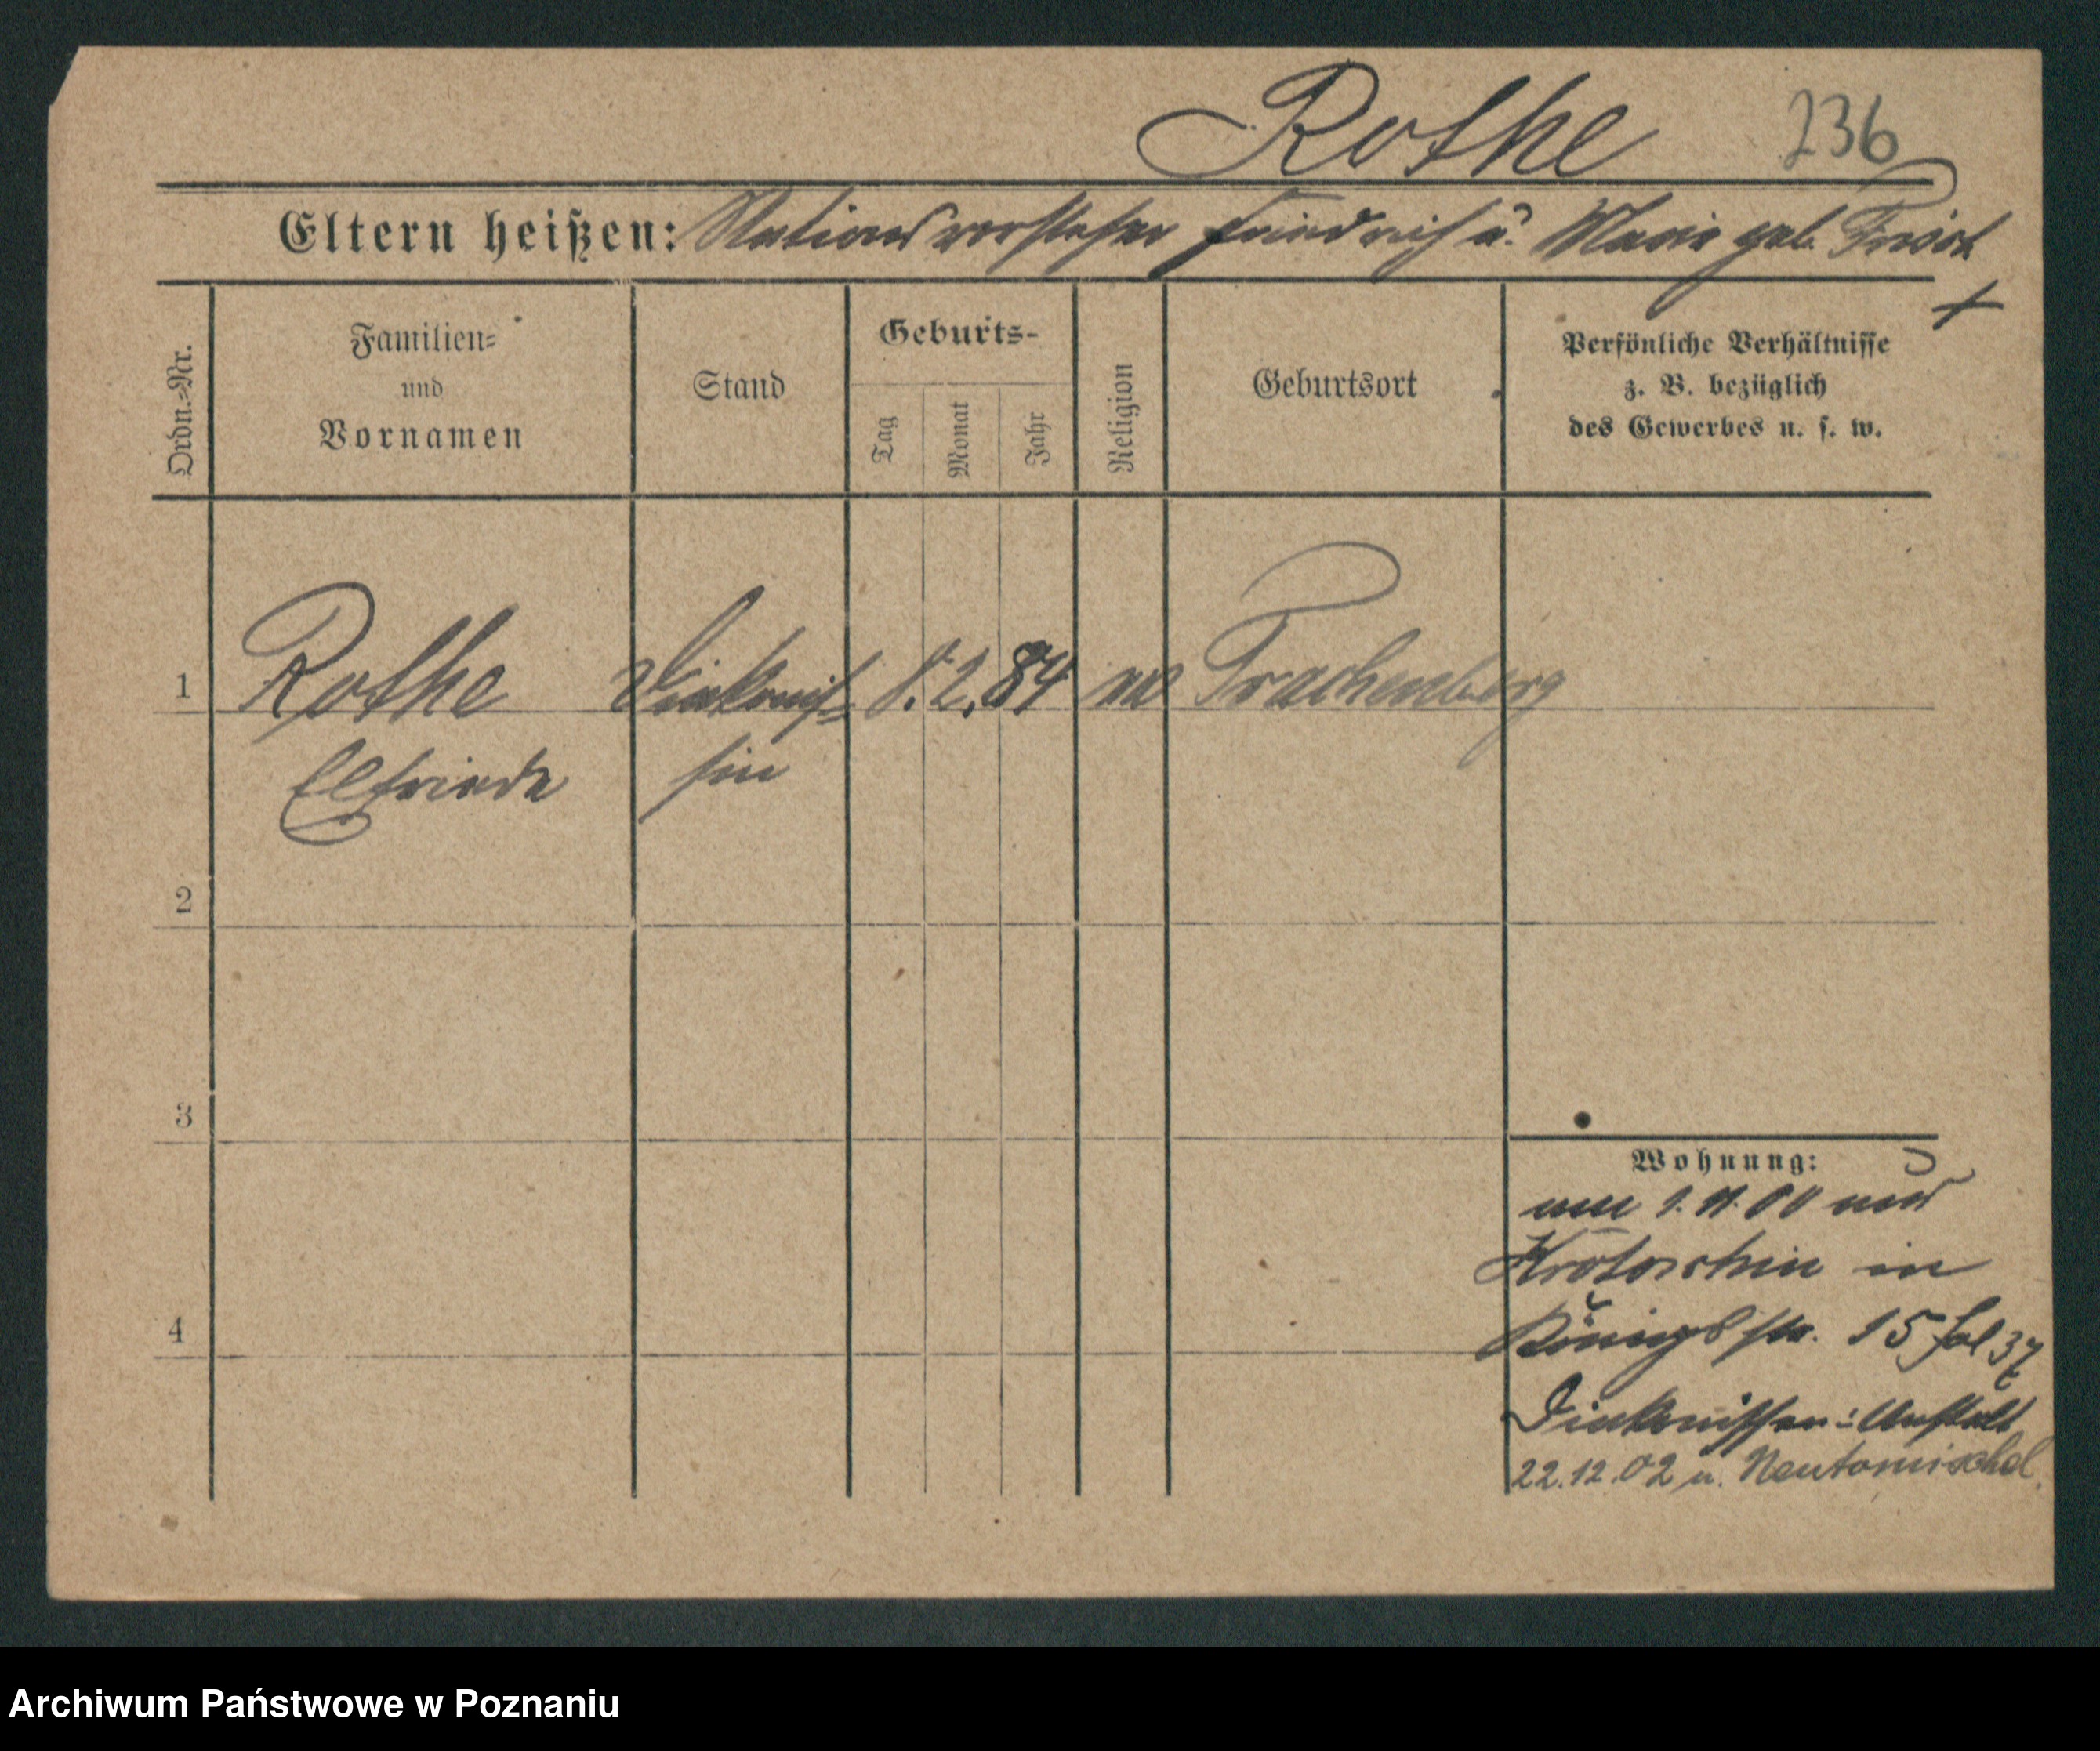 Rothe 236
Eltern heißen: Stationsvorsteher Friedrich u. Marie geb.
Ordn.-Nr.
Familien-
und
Vornamen
Stand
Geburts-
Tag
Monat
Jahr
Religion
Geburtsort
Persönliche Verhältnisse
z. B. bezüglich
des Gewerbes u. s. w.
1 Rothe Diakonis- 8. 2. 84 ev Trachenberg
Elfriede sin
2
3
4
Wohnung:
1. 11. 00
Krotoschin in
Königsstr. 15 fol 37
Diakonissen-Anstalt
22.12.02 n. Neutomischel
Archiwum Państwowe w Poznaniu